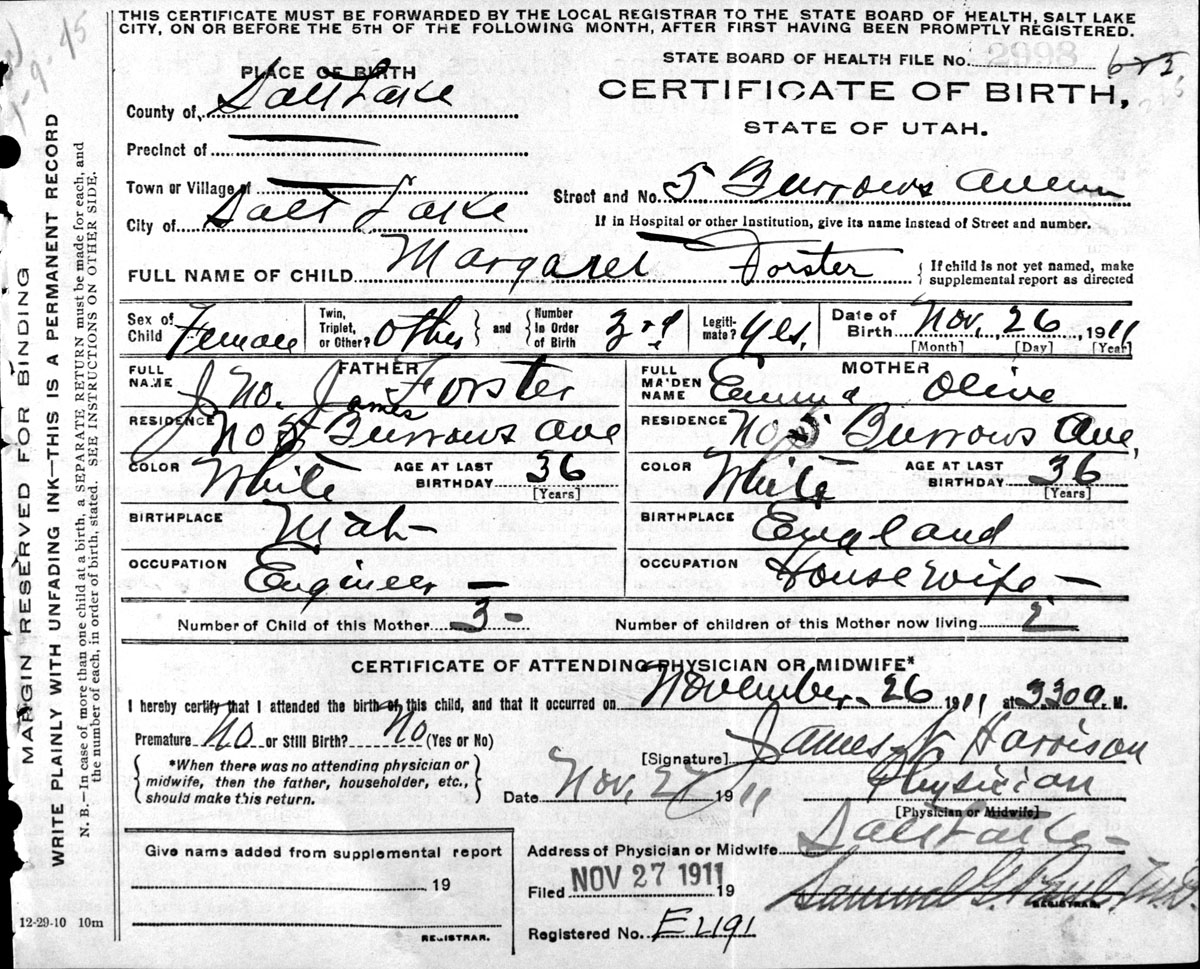 THIS CERTIFICATE MUST BE FORWARDED BY THE LOCAL REGISTRAR TO THE STATE BOARD OF HEALTH, SALT LAKE
CITY, ON OR BEFORE THE 5TH OF THE FOLLOWING MONTH, AFTER FIRST HAVING BEEN PROMPTLY REGISTERED.
STATE BOARD OF HEALTH FILE No.
PLACE OF BIRTH
CERTIFICATE OF BIRTH,
County of Salt Lake
STATE OF UTAH.
Precinct of
Town or Village of
Street and No. 5 Burrows Avenu
City of Salt Lake
If in Hospital or other Institution, give its name instead of Street and number.
FULL NAME OF CHILD Margaret Forster { If child is not yet named, make supplemental report as directed
Sex of Child Female Twin, Triplet, or Other? Other } and { Number in Order of Birth 3rd Legiti-mate? Yes. Date of Birth Nov. 26, 1911
[Month] [Day] [Year]
FATHER
FULL NAME Jno. James Forster
RESIDENCE No 5 Burrows Ave
COLOR White AGE AT LAST BIRTHDAY 36
[Years]
BIRTHPLACE Utah
OCCUPATION Engineer
MOTHER
FULL MAIDEN NAME Emma Olive
RESIDENCE No 5 Burrows Ave,
COLOR White AGE AT LAST BIRTHDAY 36
[Years]
BIRTHPLACE England
OCCUPATION House Wife
Number of Child of this Mother 3 Number of children of this Mother now living 2
CERTIFICATE OF ATTENDING PHYSICIAN OR MIDWIFE*
I hereby certify that I attended the birth of this child, and that it occurred on November 26 1911 at 330 a. M.
Premature No or Still Birth? No (Yes or No)
[Signature] James N. Harrison
{ *When there was no attending physician or midwife, then the father, householder, etc., should make this return. }
Date Nov. 27 1911 Physician
[Physician or Midwife]
Give name added from supplemental report
Address of Physician or Midwife Salt Lake
19
Filed NOV 27 1911 19 Samuel G. Paul M.D.
REGISTRAR.
12-29-10 10m
REGISTRAR.
Registered No. E4191
MARGIN RESERVED FOR BINDING
WRITE PLAINLY WITH UNFADING INK—THIS IS A PERMANENT RECORD
N. B.—In case of more than one child at a birth, a SEPARATE RETURN must be made for each, and
the number of each, in order of birth, stated. SEE INSTRUCTIONS ON OTHER SIDE.